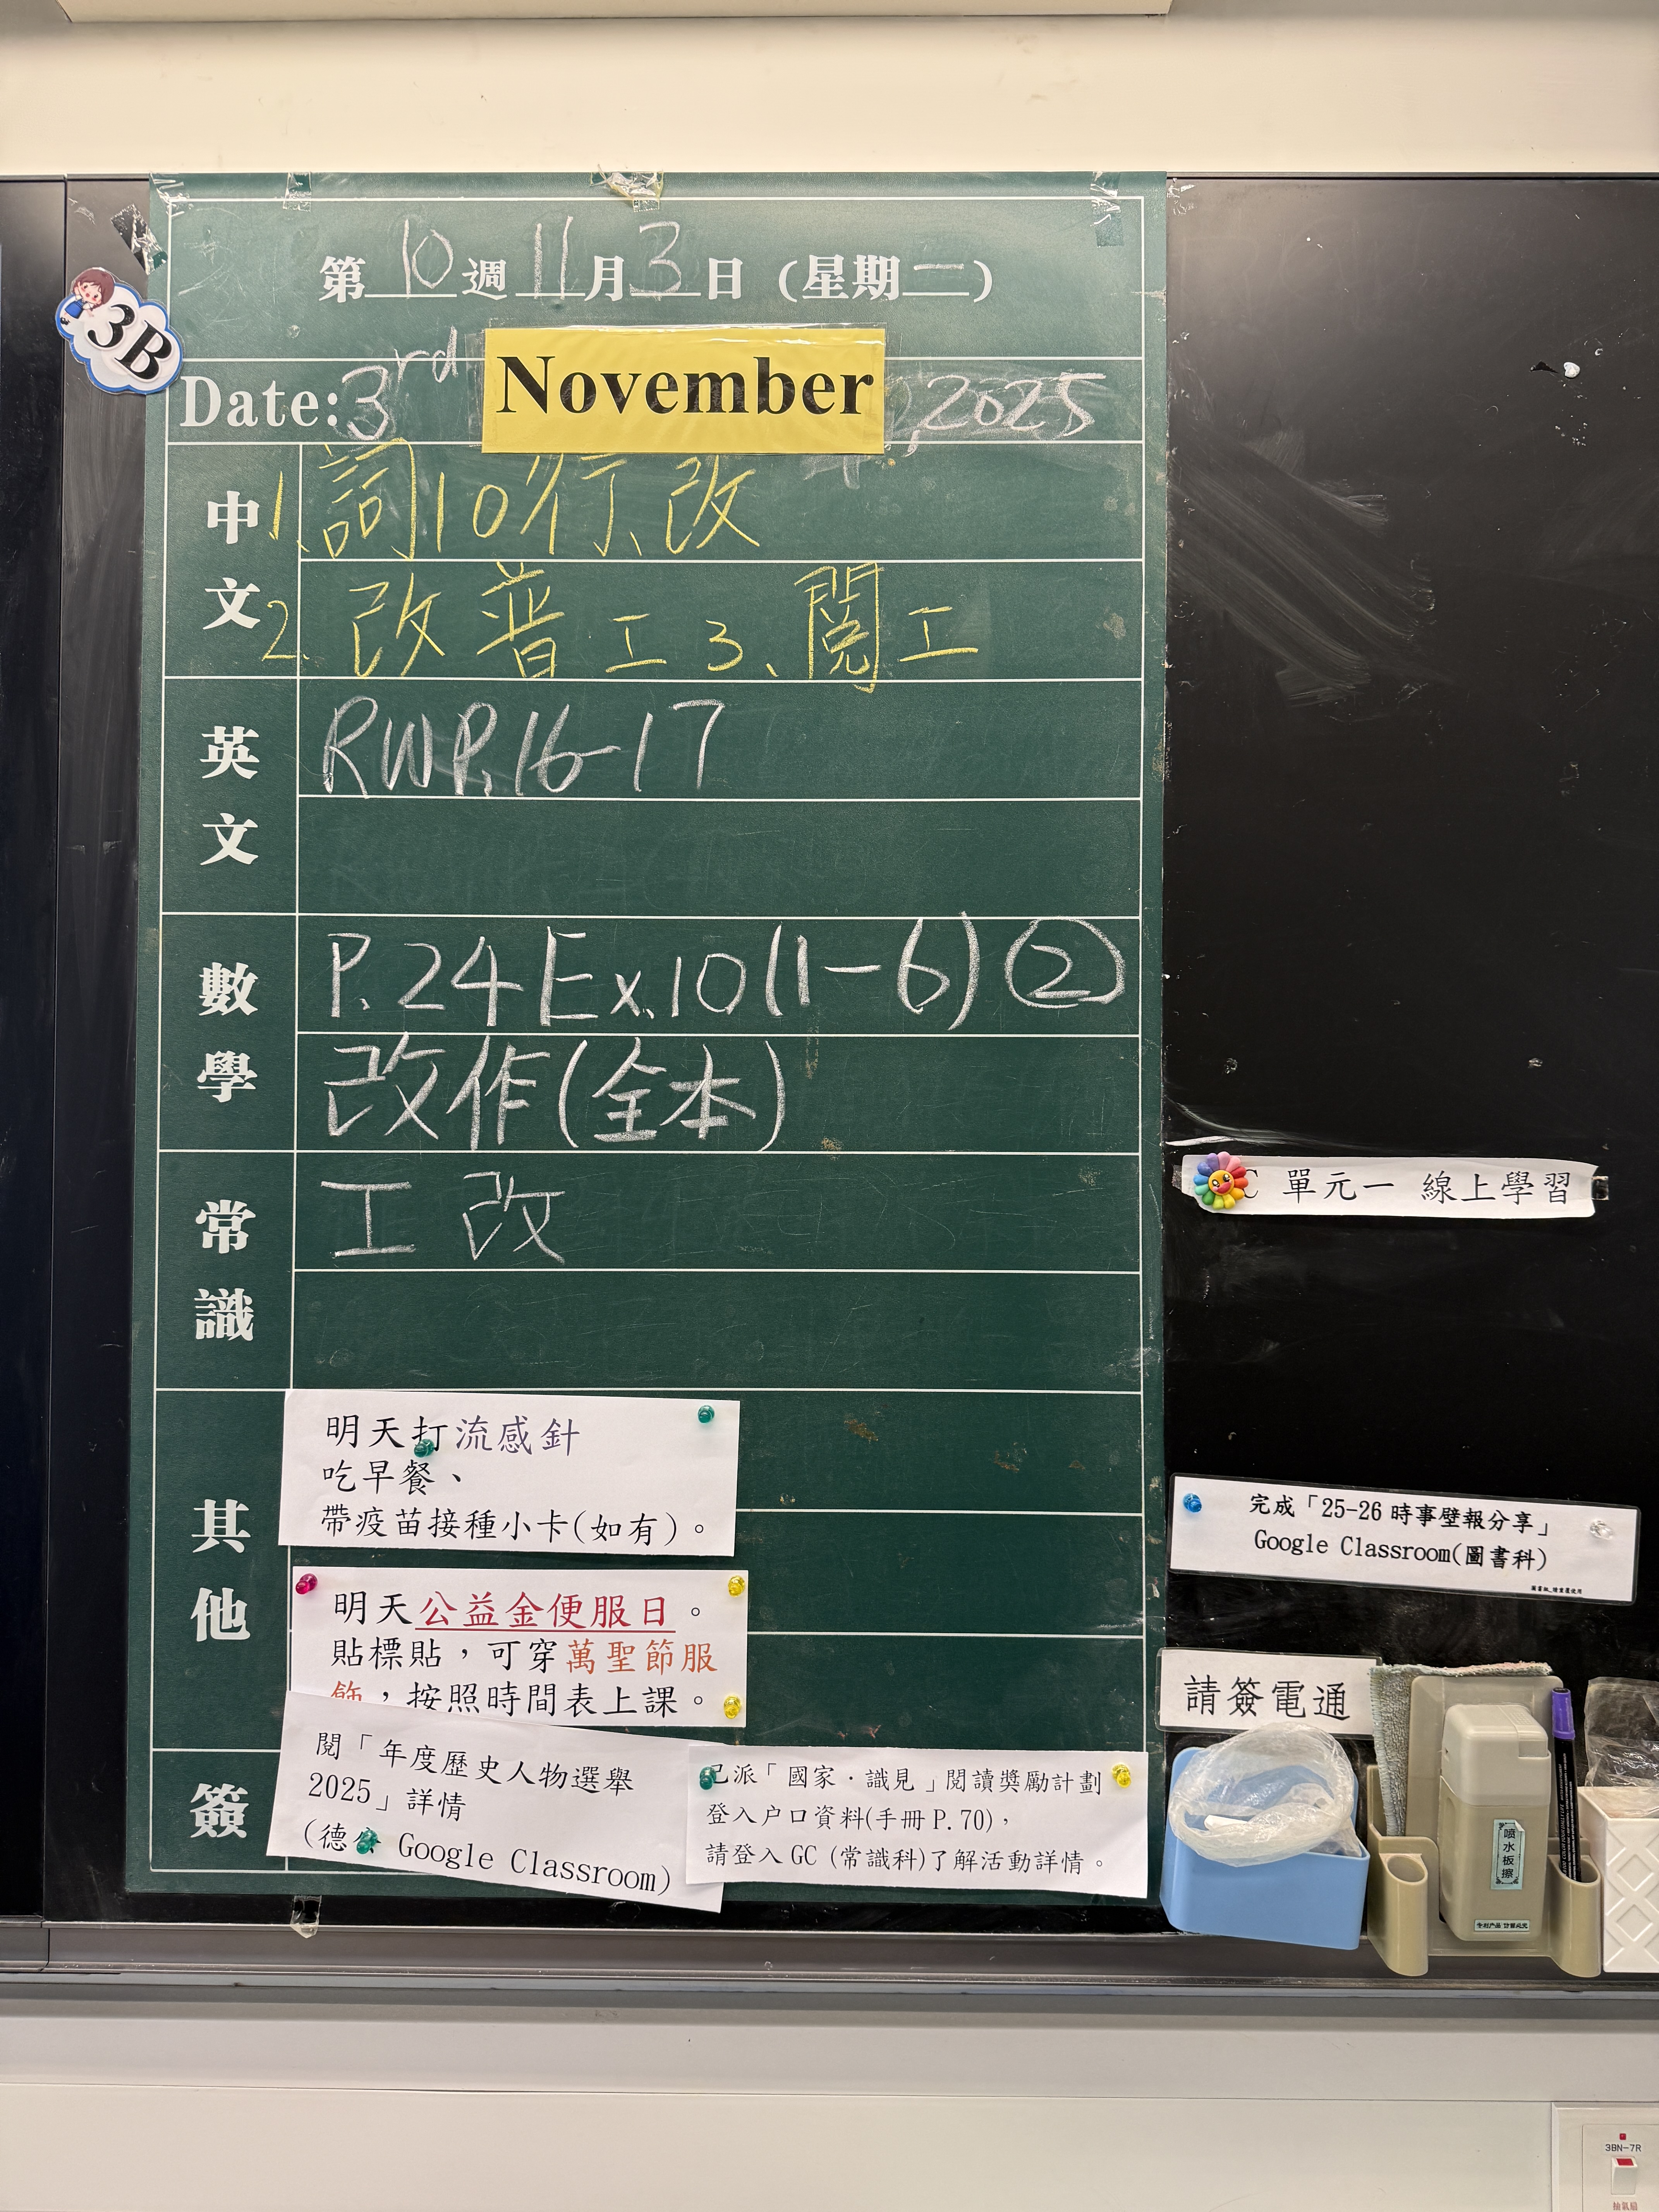 第10週11月3日(星期一)
3B
Date:3rd November, 2025
中文
1.詞10行、改
2.改普工3、閱工
英文
RWP.16-17
數學
P.24 Ex.10(1-6)②
改作(全本)
常識
工 改
其他
明天打流感針
吃早餐、
帶疫苗接種小卡(如有)。
明天公益金便服日。
貼標貼，可穿萬聖節服
飾，按照時間表上課。
簽
閱「年度歷史人物選舉
2025」詳情
(德 Google Classroom)
已派「國家．識見」閱讀獎勵計劃
登入户口資料(手冊P.70)，
請登入GC (常識科)了解活動詳情。
C 單元一 線上學習
完成「25-26 時事壁報分享」
Google Classroom(圖書科)
請簽電通
噴水板擦
3BN-7R
抽氣扇